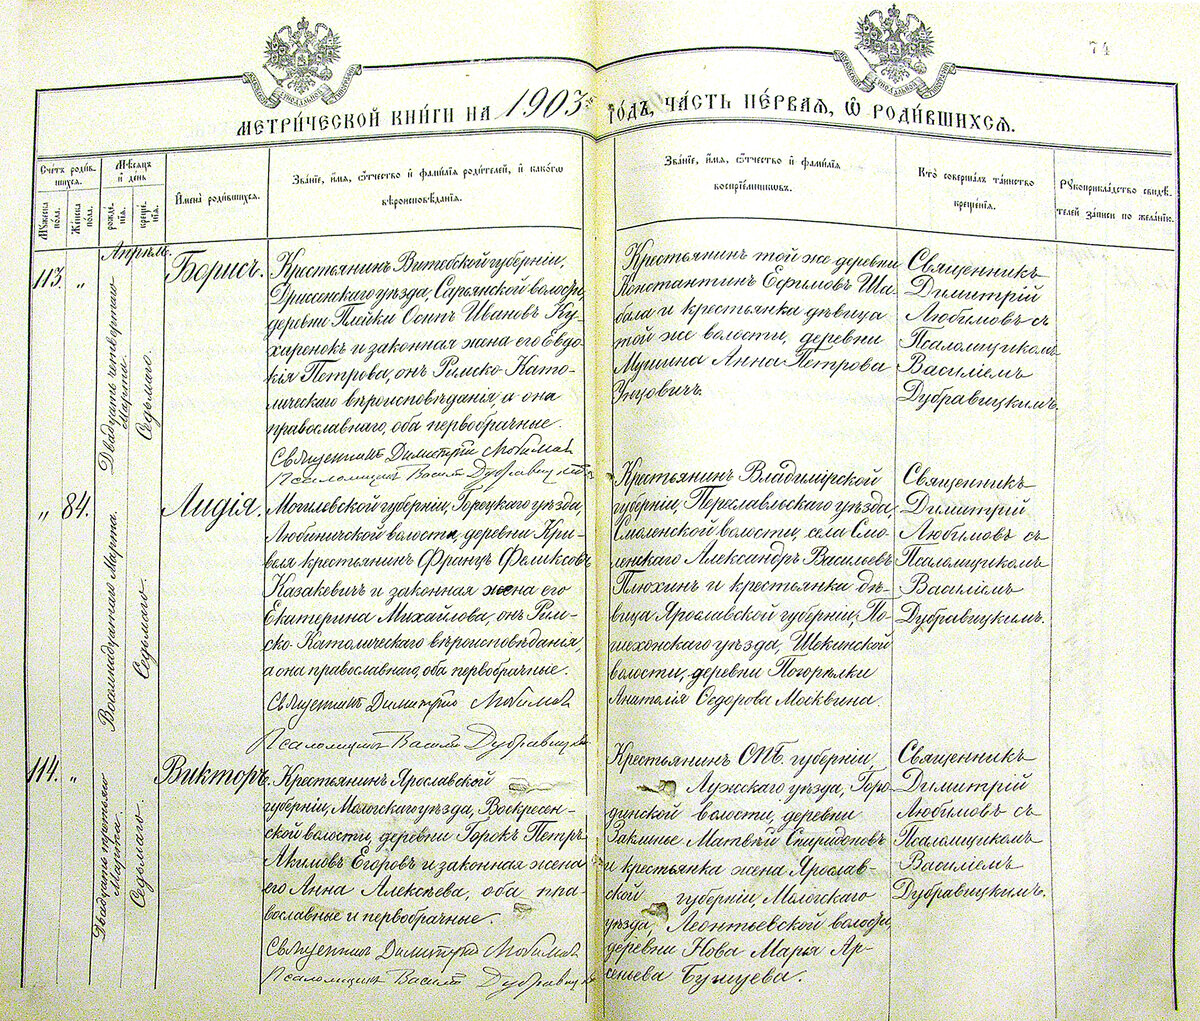 74
МЕТРИ́ЧЕСКОЙ КНИ́ГИ НА 1903 го́дъ, ЧА́СТЬ ПЕ́РВАЯ, Ѽ РОДИ́ВШИХСЯ.
Счетъ роди́в-
шихся.
Мꙋ́жеска по́ла.
Же́нска по́ла.
Мѣ́сяцъ
и де́нь
рожде́-
нїя.
креще́-
нїя.
Имена̀ роди́вшихся.
Зва́нїе, и́мя, ѻ́тчество и фами́лїя роди́телей, и како́гѡ
вѣроисповѣ́данїя.
Зва́нїе, и́мя, ѻ́тчество и фами́лїя
воспрїе́мниковъ.
Кто̀ соверша́лъ та́инство
креще́нїя.
Рꙋкоприкла́дство свидѣ́-
телей за́писи по жела́нїю.
Апрѣль.
113.
"
Двадцать четвертаго
Марта.
Седьмаго.
Борисъ.
Крестьянинъ Витебской губернiи,
Дриссенскаго уѣзда, Сарьянской волости,
деревни Плейки Осипъ Ивановъ Ку-
харенокъ и законная жена его Евдо-
кія Петрова, онъ Римско-Като-
лическаго вѣроисповѣданія, а она
православнаго, оба первобрачные.
Священникъ Димитрій Любимовъ
Псаломщикъ Василій Дубравицкій
Крестьянинъ той же деревни
Константинъ Ефимовъ Ша-
бала и крестьянка дѣвица
той же волости, деревни
Мушина Анна Петрова
Священникъ
Димитрій
Любимовъ съ
Псаломщикомъ
Василіемъ
Дубравицкимъ.
"
84.
Восемнадцатаго Марта.
Седьмаго.
Лидія.
Могилевской губерніи, Горецкаго уѣзда,
Любиничской волости, деревни Кри-
веля крестьянинъ Францъ Феликсовъ
Казакевичъ и законная жена его
Екатерина Михайлова, онъ Рим-
ско-Католическаго вѣроисповѣданія,
а она православнаго, оба первобрачные.
Священникъ Димитрій Любимовъ
Псаломщикъ Василій Дубравицкій
Крестьянинъ Владимірской
губерніи, Переславльскаго уѣзда,
Смоленской волости, села Смо-
ленскаго Александръ Васильевъ
Плюхинъ и крестьянка дѣ-
вица Ярославской губерніи, По-
шехонскаго уѣзда, Щекинской
волости, деревни Погорѣлки
Анатолія Ѳедорова Москвина.
Священникъ
Димитрій
Любимовъ съ
Псаломщикомъ
Василіемъ
Дубравицкимъ.
114.
"
Двадцать третьяго
Марта.
Седьмаго.
Викторъ.
Крестьянинъ Ярославской
губерніи, Мологскаго уѣзда, Воскресен-
ской волости, деревни Горокъ Петръ
Акимовъ Егеровъ и законная жена
его Анна Алексѣева, оба пра-
вославные и первобрачные.
Священникъ Димитрій Любимовъ
Псаломщикъ Василій Дубравицкій
Крестьянинъ СПБ. губерніи
Лужскаго уѣзда, Горо-
динской волости, деревни
Заклинье Матвѣй Спиридоновъ
и крестьянка жена Ярослав-
ской губерніи, Мологскаго
уѣзда, Леонтьевской волости,
деревни Нова Марья Ар-
сеньева
Священникъ
Димитрій
Любимовъ съ
Псаломщикомъ
Василіемъ
Дубравицкимъ.